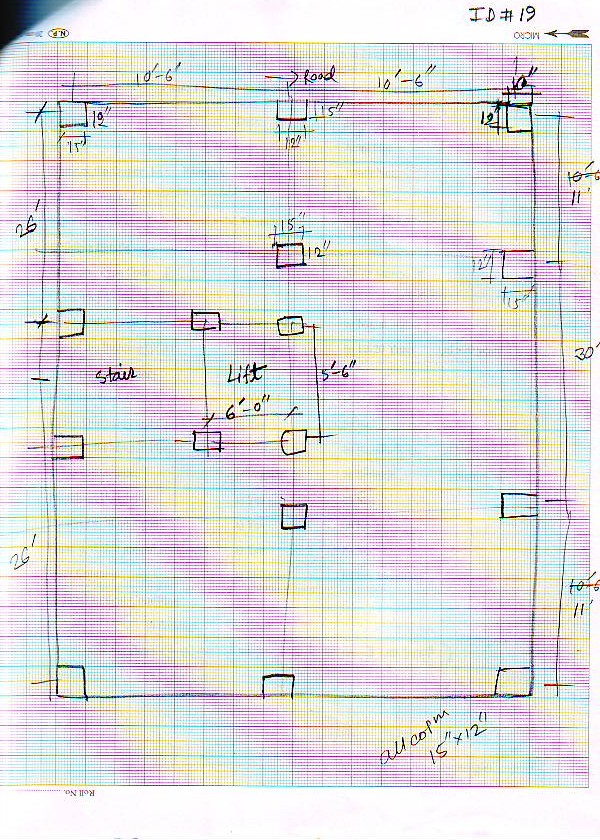 ID # 19
N.P.
MICRO
10'-6"
Road
10'-6"
10"
12"
15"
15"
12"
12"
10'-6
11'
26'
15"
12"
12"
15"
30'
Stair
Lift
5'-6"
6'-0"
26'
10'-6
11'
All colm
15" x 12"
Roll No.